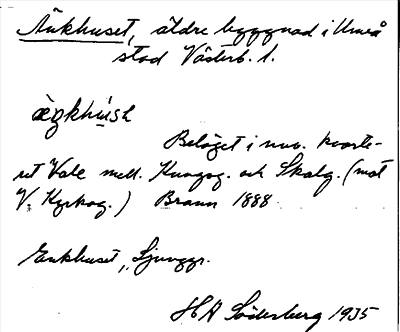 Änkhuset, äldre byggnad i Umeå
stad Västerb. l.
Beläget i nuv. kvarte-
ret Vale mell. Kungsg. och Skolg. (mot
V. Kyrkog.) Brann 1888
Enkhuset, Ljunggr.
HA Söderberg 1935